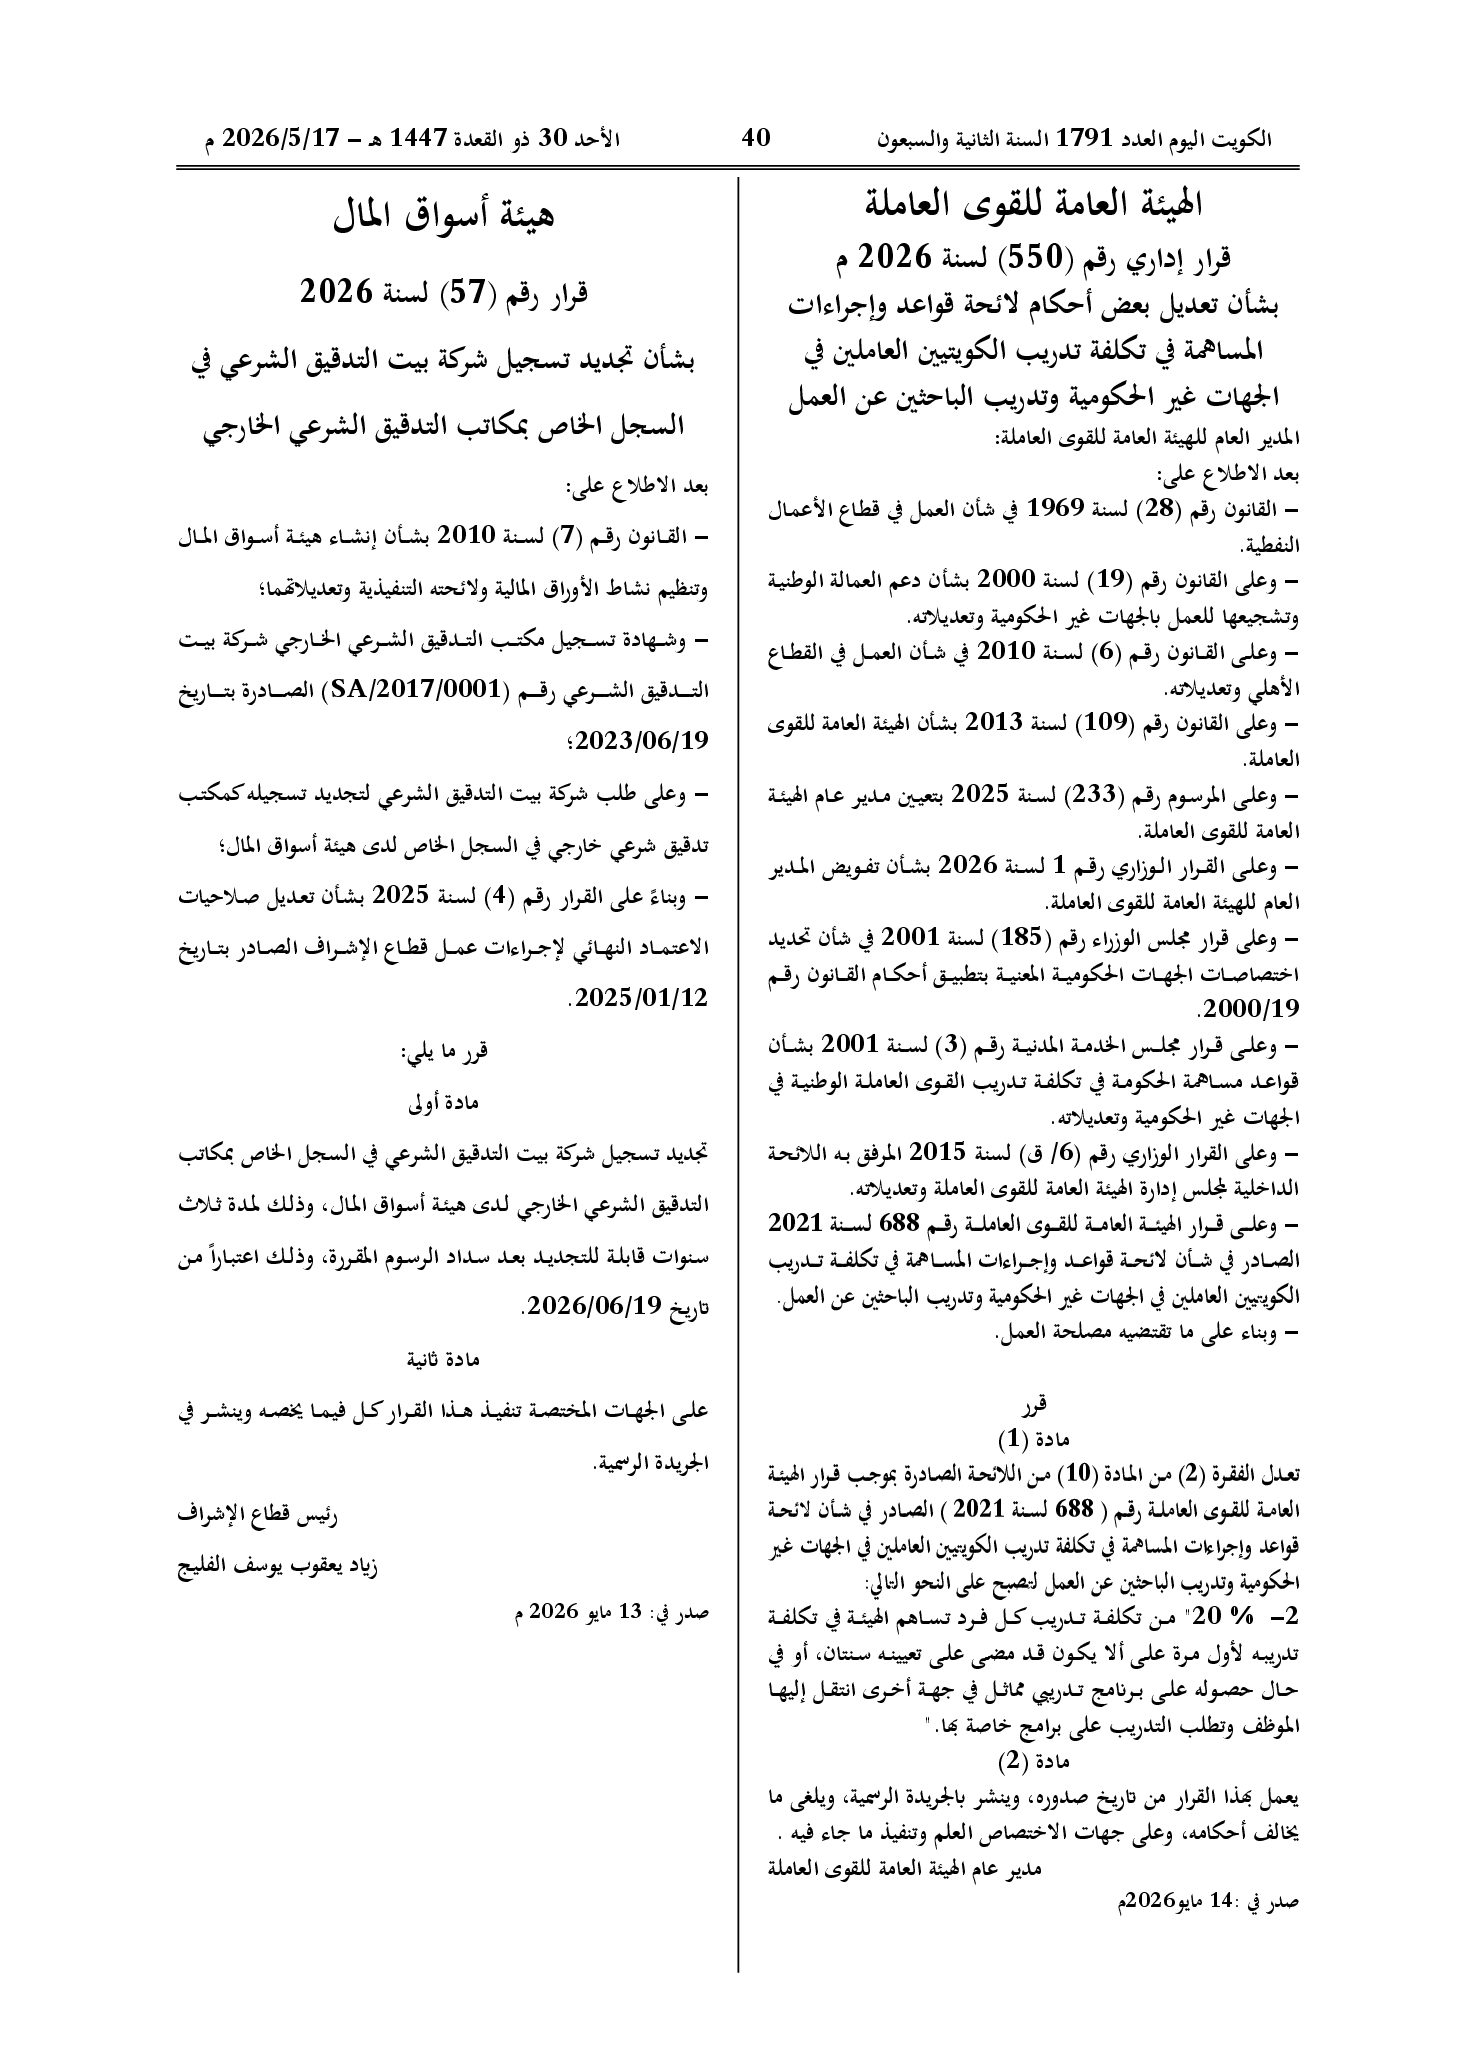 الكويت اليوم العدد 1791 السنة الثانية والسبعون
40
الأحد 30 ذو القعدة 1447 هـ – 2026/5/17 م
الهيئة العامة للقوى العاملة
قرار إداري رقم (550) لسنة 2026 م
بشأن تعديل بعض أحكام لائحة قواعد وإجراءات
المساهمة في تكلفة تدريب الكويتيين العاملين في
الجهات غير الحكومية وتدريب الباحثين عن العمل
المدير العام للهيئة العامة للقوى العاملة:
بعد الاطلاع على:
– القانون رقم (28) لسنة 1969 في شأن العمل في قطاع الأعمال
النفطية.
– وعلى القانون رقم (19) لسنة 2000 بشأن دعم العمالة الوطنية
وتشجيعها للعمل بالجهات غير الحكومية وتعديلاته.
– وعلى القانون رقم (6) لسنة 2010 في شأن العمل في القطاع
الأهلي وتعديلاته.
– وعلى القانون رقم (109) لسنة 2013 بشأن الهيئة العامة للقوى
العاملة.
– وعلى المرسوم رقم (233) لسنة 2025 بتعيين مدير عام الهيئة
العامة للقوى العاملة.
– وعلى القرار الوزاري رقم 1 لسنة 2026 بشأن تفويض المدير
العام للهيئة العامة للقوى العاملة.
– وعلى قرار مجلس الوزراء رقم (185) لسنة 2001 في شأن تحديد
اختصاصات الجهات الحكومية المعنية بتطبيق أحكام القانون رقم
2000/19.
– وعلى قرار مجلس الخدمة المدنية رقم (3) لسنة 2001 بشأن
قواعد مساهمة الحكومة في تكلفة تدريب القوى العاملة الوطنية في
الجهات غير الحكومية وتعديلاته.
– وعلى القرار الوزاري رقم (6/ ق) لسنة 2015 المرفق به اللائحة
الداخلية لمجلس إدارة الهيئة العامة للقوى العاملة وتعديلاته.
– وعلى قرار الهيئة العامة للقوى العاملة رقم 688 لسنة 2021
الصادر في شأن لائحة قواعد وإجراءات المساهمة في تكلفة تدريب
الكويتيين العاملين في الجهات غير الحكومية وتدريب الباحثين عن العمل.
– وبناء على ما تقتضيه مصلحة العمل.
قرر
مادة (1)
تعدل الفقرة (2) من المادة (10) من اللائحة الصادرة بموجب قرار الهيئة
العامة للقوى العاملة رقم ( 688 لسنة 2021 ) الصادر في شأن لائحة
قواعد وإجراءات المساهمة في تكلفة تدريب الكويتيين العاملين في الجهات غير
الحكومية وتدريب الباحثين عن العمل لتصبح على النحو التالي:
2– % 20" من تكلفة تدريب كل فرد تساهم الهيئة في تكلفة
تدريبه لأول مرة على ألا يكون قد مضى على تعيينه سنتان، أو في
حال حصوله على برنامج تدريبي مماثل في جهة أخرى انتقل إليها
الموظف وتطلب التدريب على برامج خاصة بها."
مادة (2)
يعمل بهذا القرار من تاريخ صدوره، وينشر بالجريدة الرسمية، ويلغى ما
يخالف أحكامه، وعلى جهات الاختصاص العلم وتنفيذ ما جاء فيه .
مدير عام الهيئة العامة للقوى العاملة
صدر في :14 مايو2026م
هيئة أسواق المال
قرار رقم (57) لسنة 2026
بشأن تجديد تسجيل شركة بيت التدقيق الشرعي في
السجل الخاص بمكاتب التدقيق الشرعي الخارجي
بعد الاطلاع على:
– القانون رقم (7) لسنة 2010 بشأن إنشاء هيئة أسواق المال
وتنظيم نشاط الأوراق المالية ولائحته التنفيذية وتعديلاتهما؛
– وشهادة تسجيل مكتب التدقيق الشرعي الخارجي شركة بيت
التدقيق الشرعي رقم (SA/2017/0001) الصادرة بتاريخ
2023/06/19؛
– وعلى طلب شركة بيت التدقيق الشرعي لتجديد تسجيله كمكتب
تدقيق شرعي خارجي في السجل الخاص لدى هيئة أسواق المال؛
– وبناءً على القرار رقم (4) لسنة 2025 بشأن تعديل صلاحيات
الاعتماد النهائي لإجراءات عمل قطاع الإشراف الصادر بتاريخ
2025/01/12.
قرر ما يلي:
مادة أولى
تجديد تسجيل شركة بيت التدقيق الشرعي في السجل الخاص بمكاتب
التدقيق الشرعي الخارجي لدى هيئة أسواق المال، وذلك لمدة ثلاث
سنوات قابلة للتجديد بعد سداد الرسوم المقررة، وذلك اعتباراً من
تاريخ 2026/06/19.
مادة ثانية
على الجهات المختصة تنفيذ هذا القرار كل فيما يخصه وينشر في
الجريدة الرسمية.
رئيس قطاع الإشراف
زياد يعقوب يوسف الفليج
صدر في: 13 مايو 2026 م